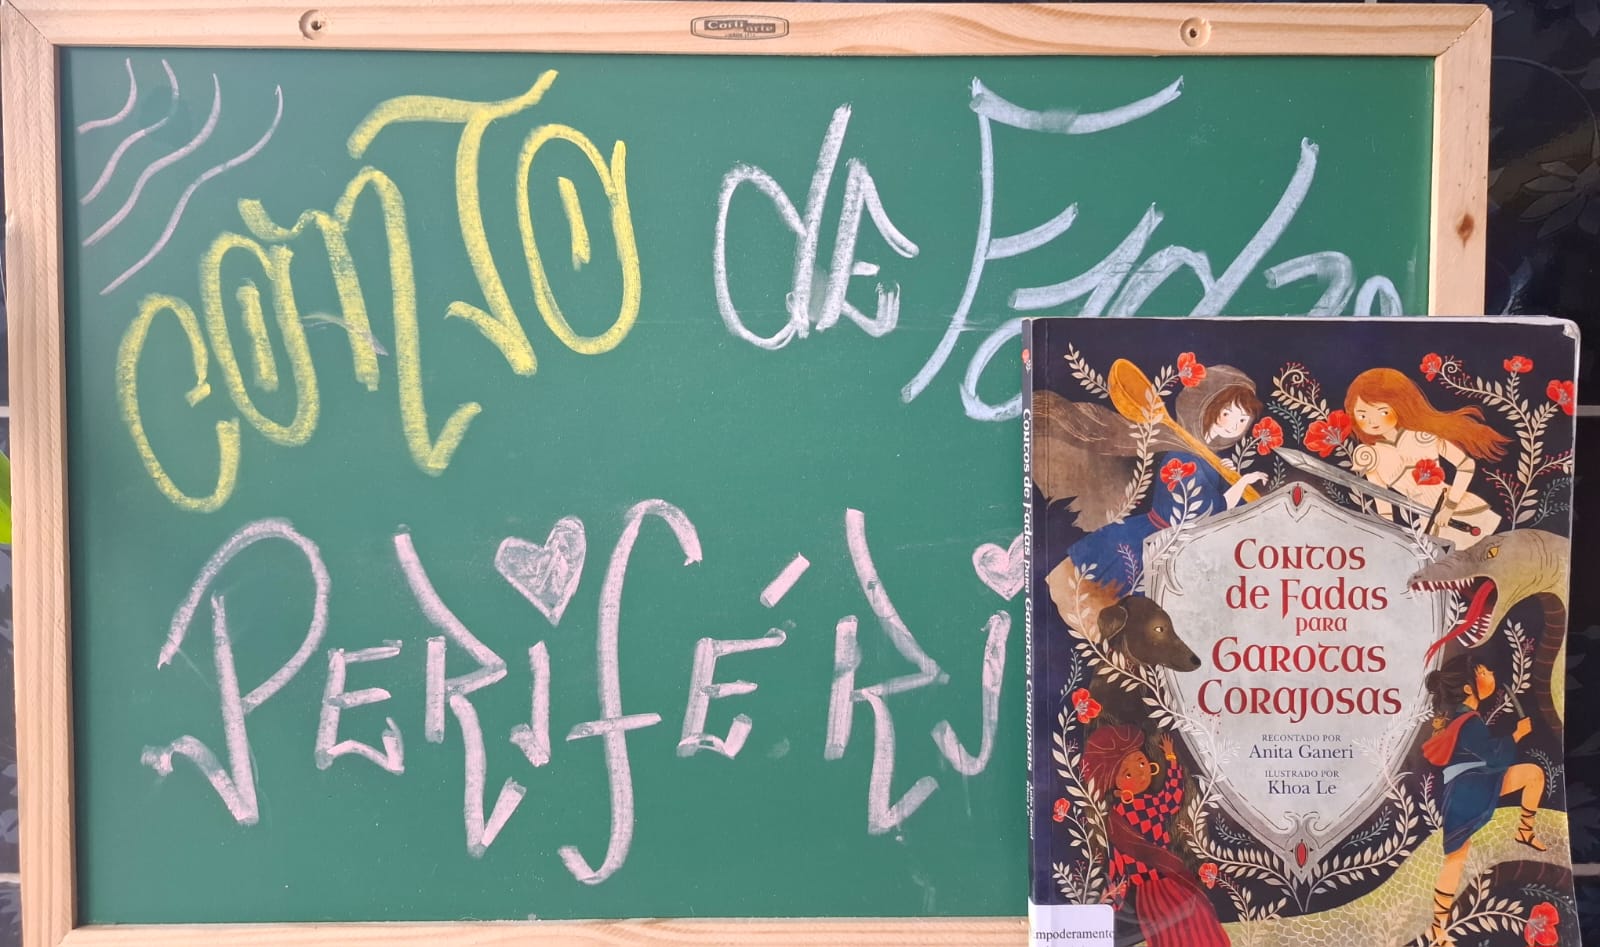 Corti arte
CONTO de
PERIFÉRI
Contos de Fadas para Garotas Corajosas
CONTOS
de Fadas
para
GAROTAS
CORAJOSAS
RECONTADO POR
Anita Ganeri
ILUSTRADO POR
Khoa Le
mpoderamento